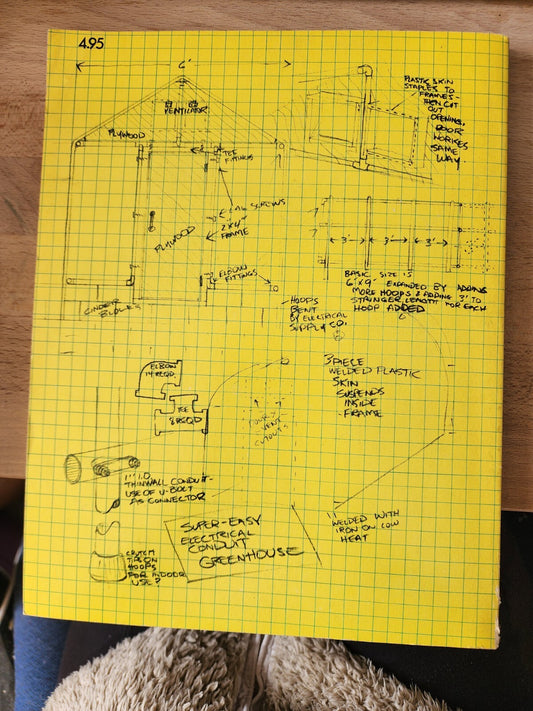 4.95
6'
VENTILATOR
PLYWOOD
TEE
FITTINGS
LAG SCREWS
2"X4"
FRAME
PLYWOOD
ELBOW
FITTINGS
CINDER
BLOCKS
PLASTIC SKIN
STAPLES TO
FRAMES -
THEN CUT
OUT
OPENING,
DOOR
WORKES
SAME
WAY.
3' 3' 3'
BASIC SIZE IS
6'X9' EXPANDED BY ADDING
MORE HOOPS & ADDING 3' TO
STRINGER LENGTH FOR EACH
HOOP ADDED
-HOOPS
BENT
BY ELECTRICAL
SUPPLY CO.
3 PIECE
WELDED PLASTIC
SKIN
SUSPENDS
INSIDE
FRAME
ELBOW
14 REQD
TEE
8 REQD
DOOR &
VENT
CUTOUTS
1" I.D.
THINWALL CONDUIT-
USE OF U-BOLT
AS CONNECTOR
CRUTCH
TIPS ON
HOOPS
FOR INDOOR
USE?
SUPER-EASY
ELECTRICAL
CONDUIT
GREENHOUSE
WELDED WITH
IRON ON LOW
HEAT